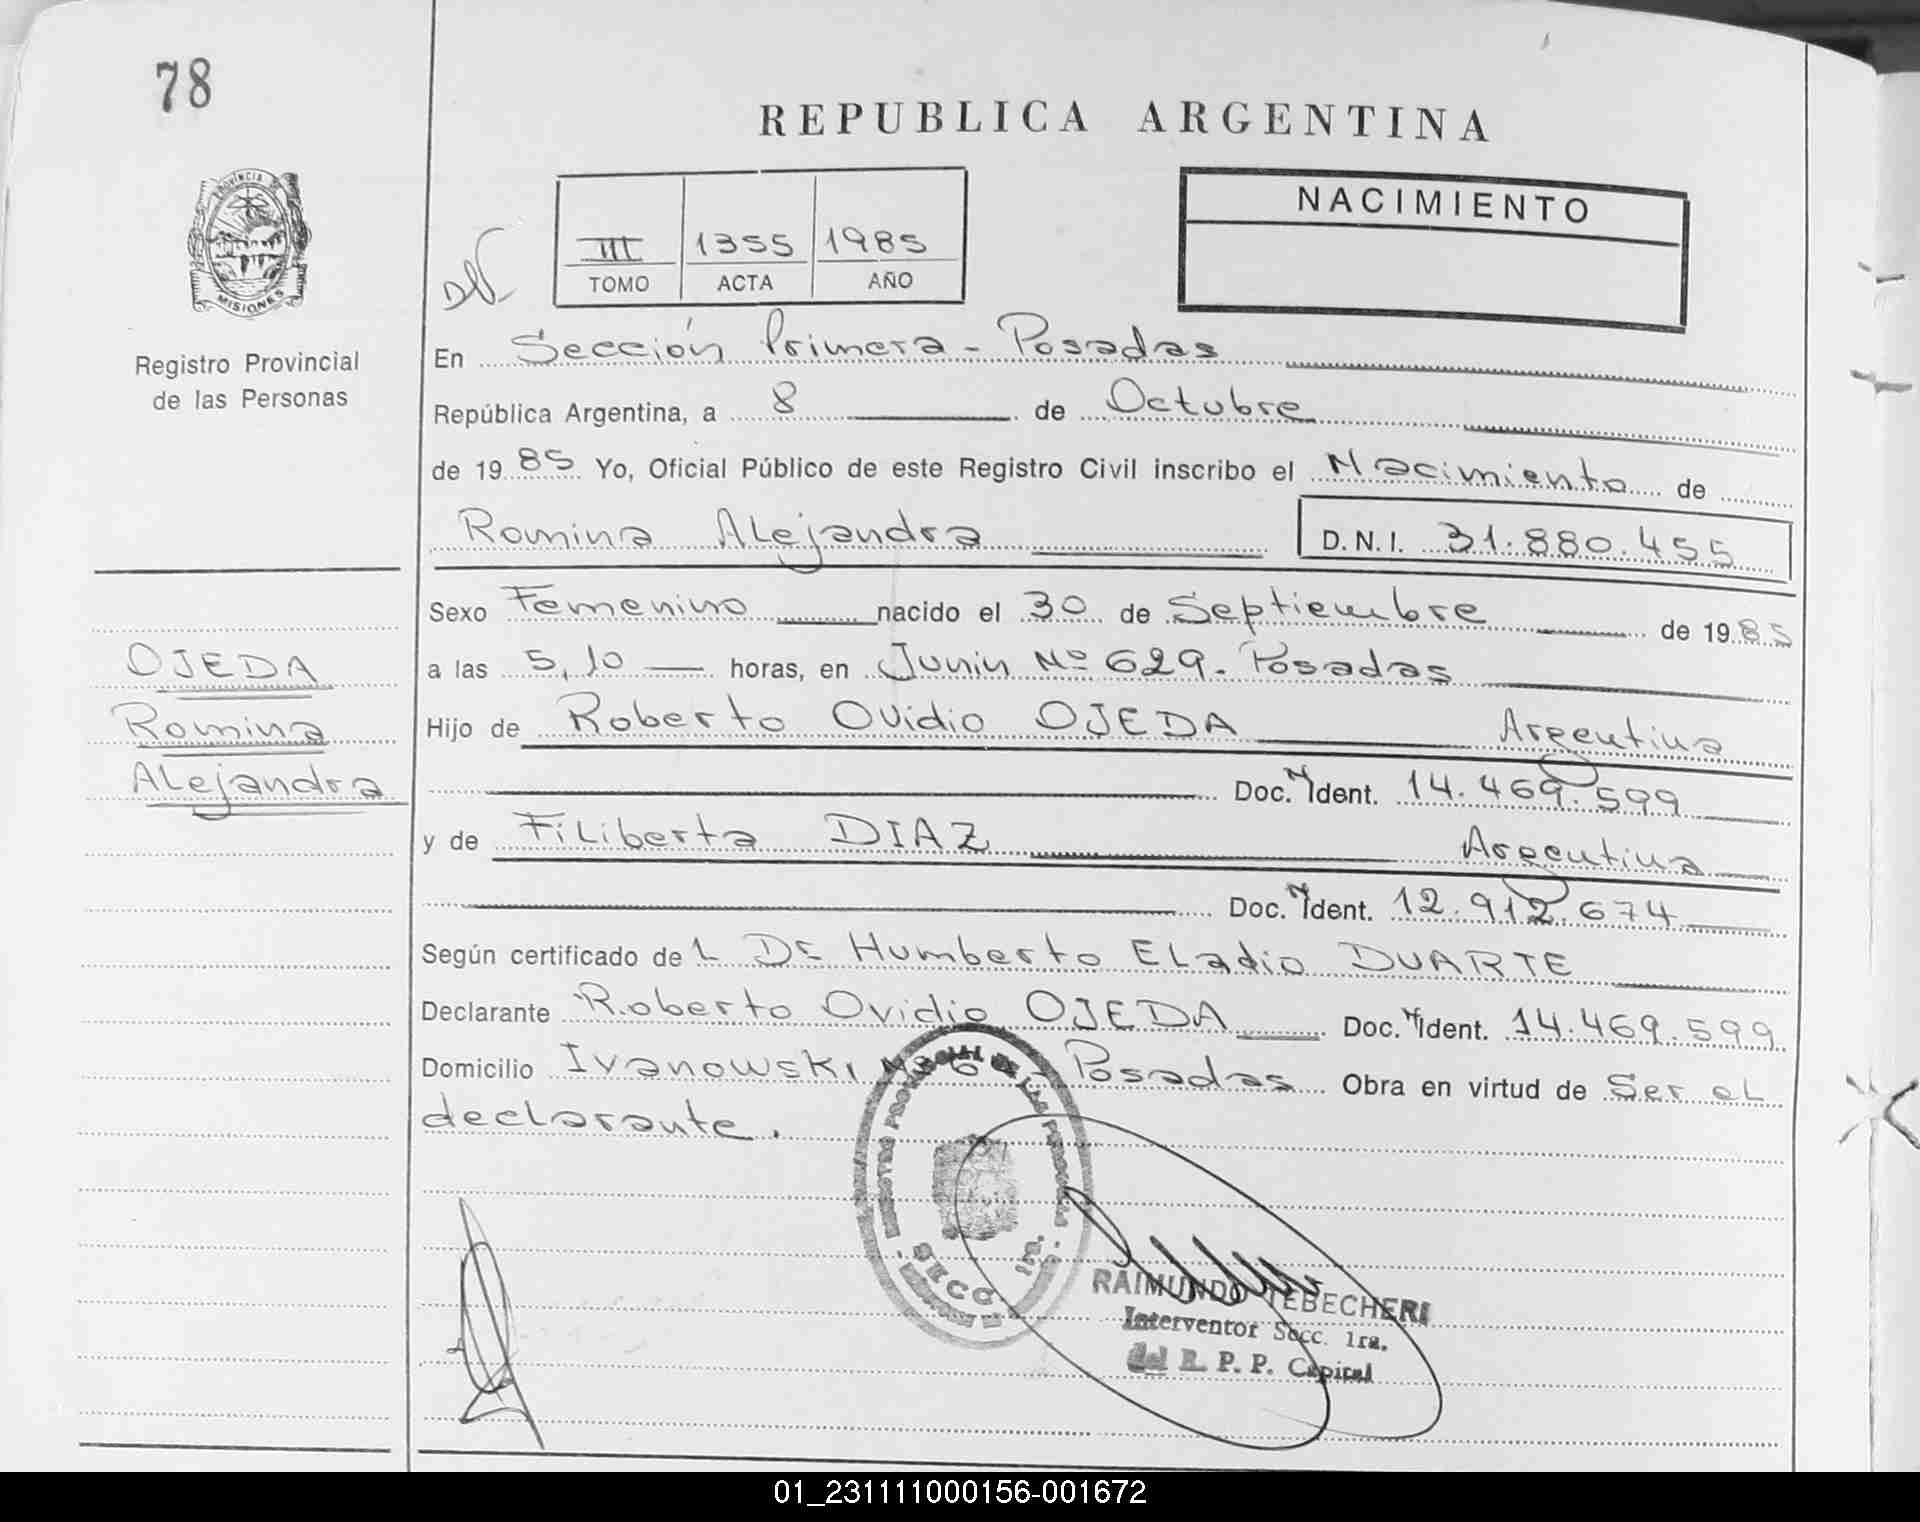 78
REPUBLICA ARGENTINA
PROVINCIA DE
MISIONES
Registro Provincial
de las Personas
III 1355 1985
TOMO ACTA AÑO
NACIMIENTO
En Sección Primera - Posadas
República Argentina, a 8 de Octubre
de 1985 Yo, Oficial Público de este Registro Civil inscribo el Nacimiento de
Romina Alejandra D.N.I. 31.880.455
Sexo Femenino nacido el 30 de Septiembre de 1985
OJEDA
Romina
Alejandra
a las 5,10 horas, en Junin Nº 629. Posadas
Hijo de Roberto Ovidio OJEDA Argentina
Doc. N Ident. 14.469.599
y de Filiberta DIAZ Argentina
Doc. N Ident. 12.912.674
Según certificado del Dr Humberto Eladio DUARTE
Declarante Roberto Ovidio OJEDA Doc. N Ident. 14.469.599
Domicilio Ivanowski Posadas Obra en virtud de Ser el
declarante.
REGISTRO PROVINCIAL DE LAS PERSONAS
SECC. 1ra.
RAIMUNDO TEBECHERI
Interventor Secc. 1ra.
del R. P. P. Capital
01_231111000156-001672